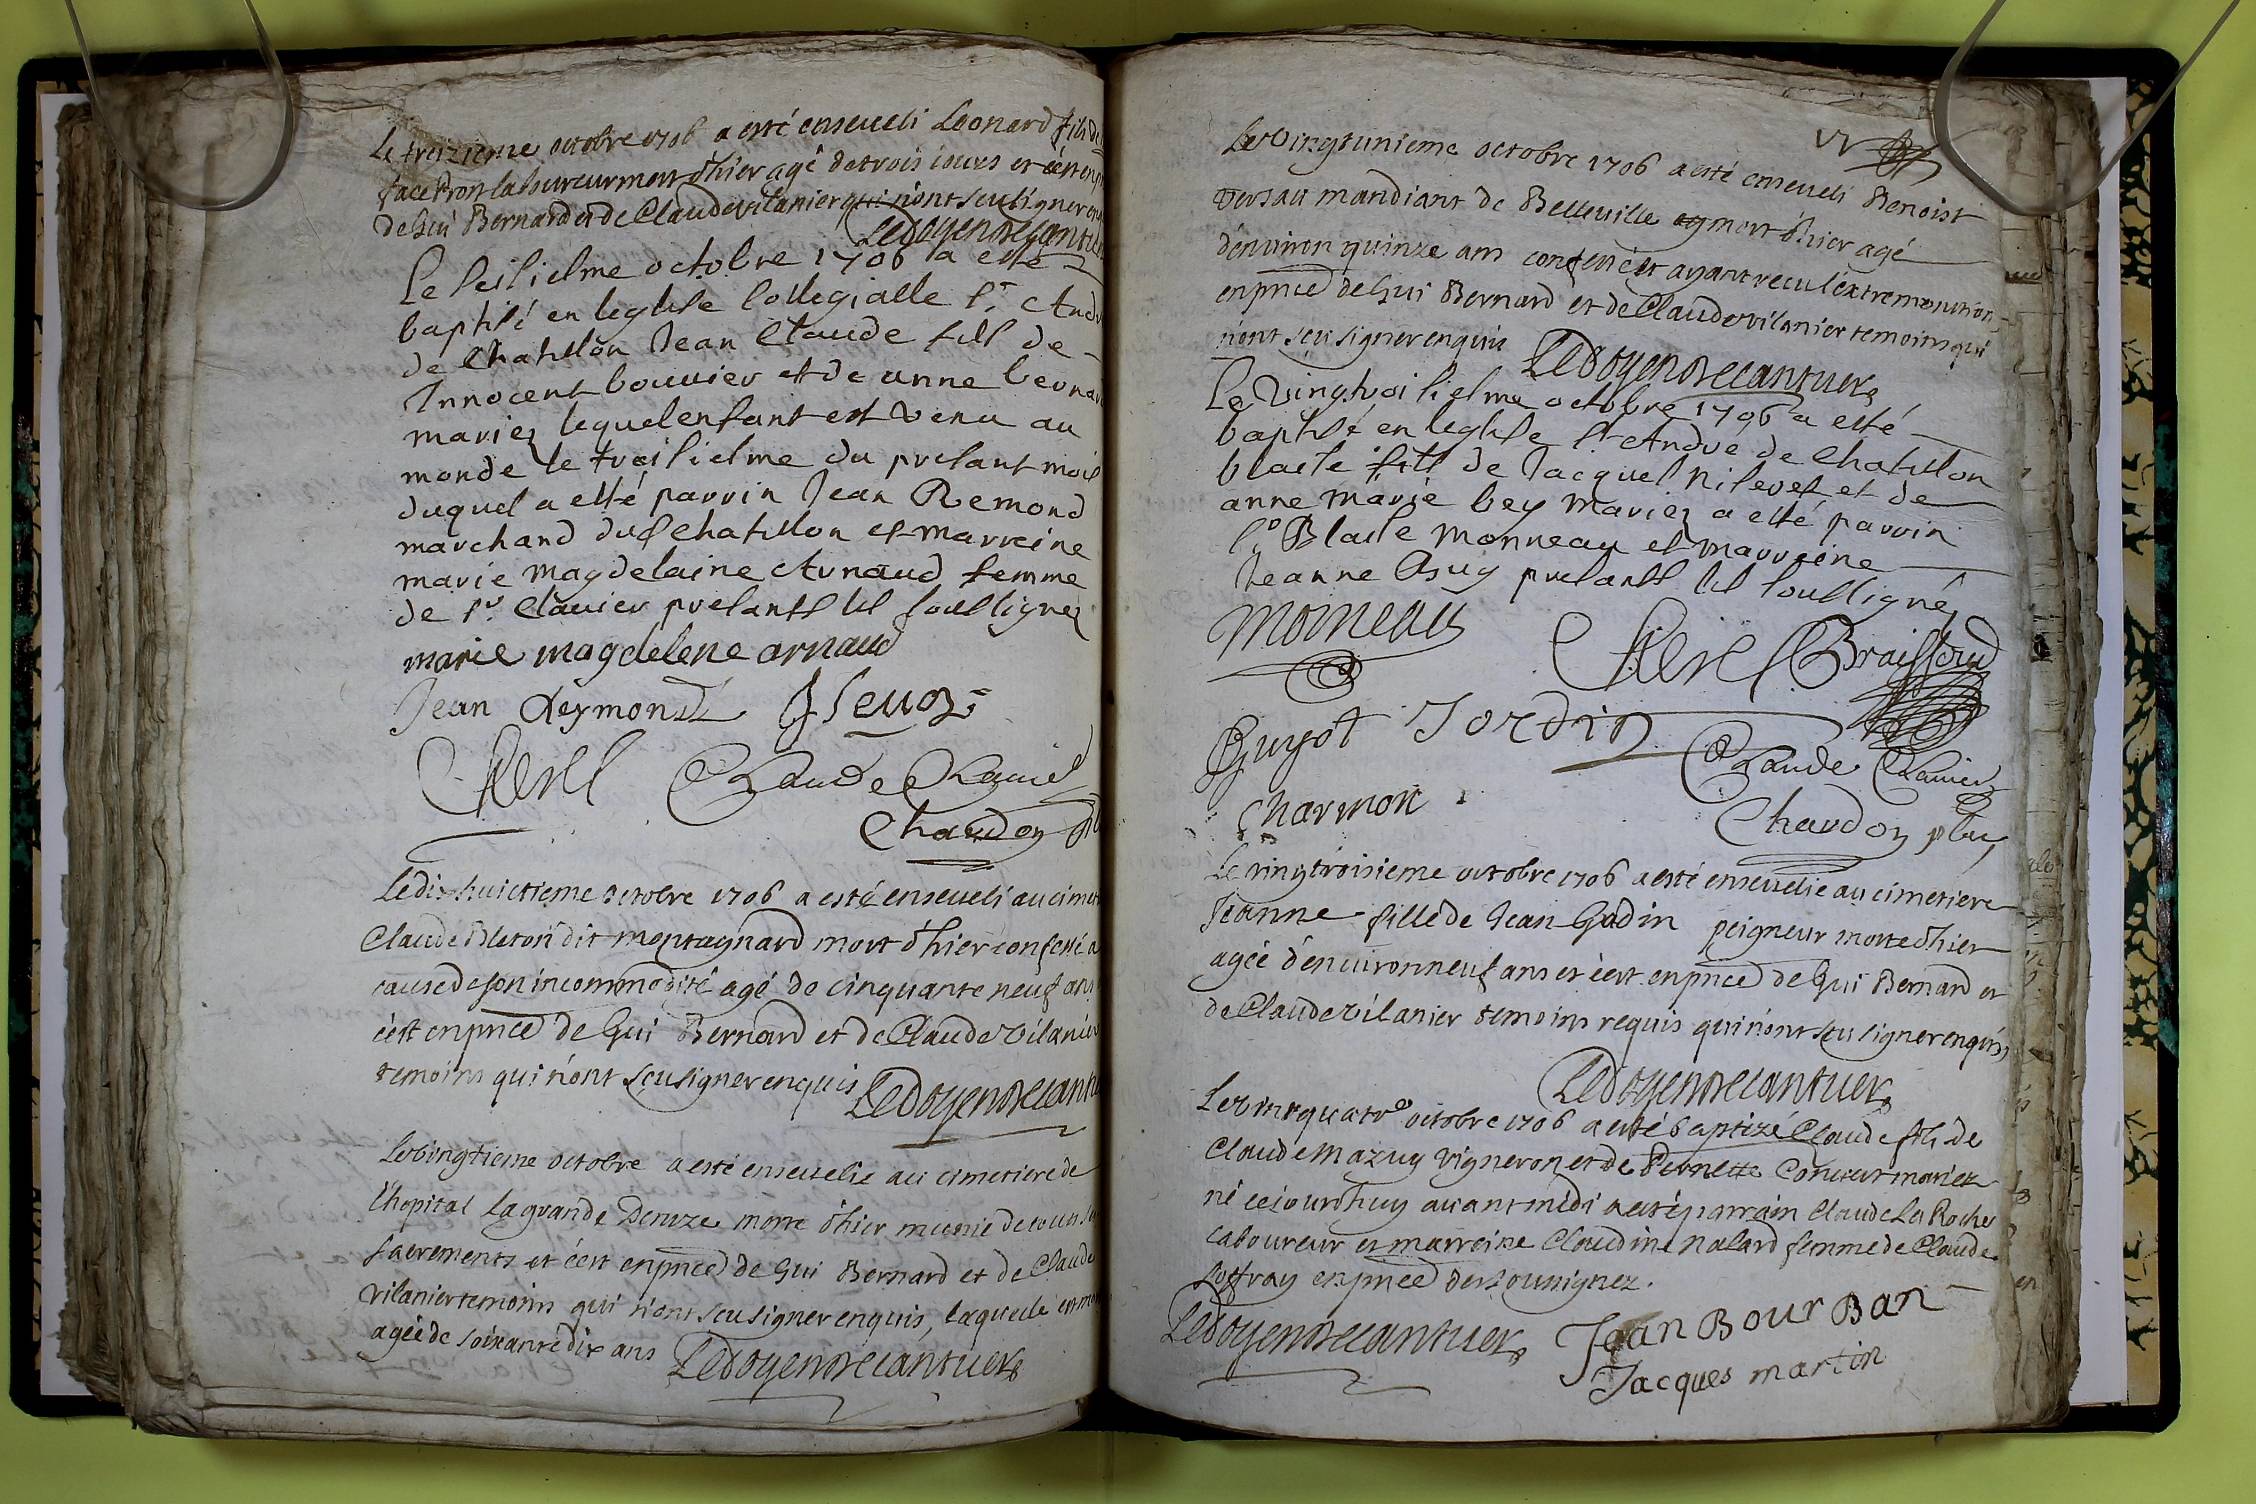 Le treizieme octobre 1706 a esté enseueli Leonard fils de
laboureur mort d'hier agé de trois iours et c'est en
de Gui Bernard et de Claude vilanier qui n'ont sceu signer
Ledoyen de Cantuer
Le seisiesme octobre 1706 a esté
baptisé en leglise Collegialle St. And
de Chatillon Jean Claude fils de
Innocent bouuier et de anne bernar
mariez lequel enfant est venu au
monde le treisiesme du presant mois
duquel a esté parrin Jean Remond
marchand dud Chatillon et marreine
marie magdelaine Arnaud femme
de sr. Clauier presants les soussignez
marie magdelene arnaud
Jean Reymond
Claude Clauier
Chardon
Le dix huictieme octobre 1706 a esté enseueli au cimet
Claude Bleton dit montagnard mort d'hier confessé a
cause de son incommodité agé de cinquante neuf ans
c'est en pnce de Gui Bernard et de Claude vilanier
temoins qui n'ont sceu signer enquis Ledoyen de Cantuer
Le vingtieme octobre a esté enseuelie au cimetiere de
l'hopital la grande Denize morte d'hier munie de tous
sacrements et c'est en pnce de Gui Bernard et de Claude
vilanier temoins qui n'ont sceu signer enquis, laquelle est
agée de soixante dix ans Ledoyen de Cantuer
Le vingtunieme octobre 1706 a esté enseueli Benoist
versau mandiant de Belleville mort d'hier agé
d'enuiron quinze ans confessé et ayant recu l'extremonction
en pnce de Gui Bernard et de Claude vilanier temoins qui
n'ont sceu signer enquis Ledoyen de Cantuer
Le vingtroisiesme octobre 1706 a esté
baptisé en leglise St Andre de Chatillon
blaise fils de Jacques et de
anne marie bey mariez a esté parrin
sr Blaise monneau et marreine
Jeanne presants les soussignez
moineau
Braissoud
Guyot Jordin
Claude Clauier
Charmon
Chardon
Le vingtroisieme octobre 1706 a esté enseuelie au cimetiere
Jeanne fille de Jean Gudin peigneur morte d'hier
agée d'enuiron neuf ans et c'est en pnce de Gui Bernard et
de Claude vilanier temoins requis qui n'ont sceu signer enquis
Ledoyen de Cantuer
Le vintquatre octobre 1706 a esté baptizé Claude fils de
Claude Mazuy vigneron et de Pernette mariez
né ce iourdhuy auant midi a esté parrain Claude La Roche
laboureur et marreine Claudine Nalard femme de Claude
Joffray en pnce des soussignez.
Ledoyen de Cantuer Jean Bourban
Jacques martin